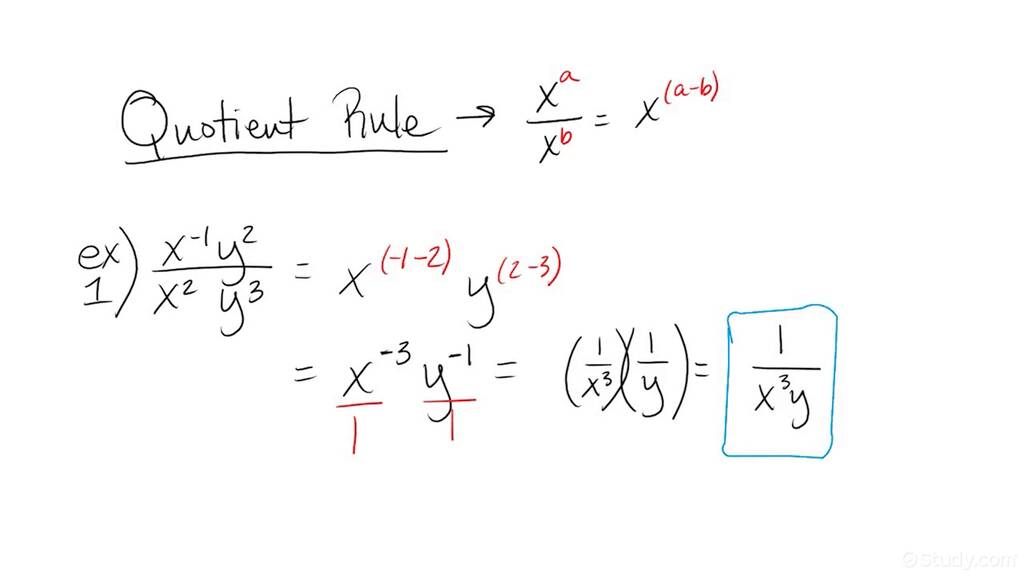 Quotient Rule → x^a / x^b = x^(a-b)
ex 1) x^-1 y^2 / x^2 y^3 = x^(-1-2) y^(2-3)
= x^-3 / 1 y^-1 / 1 = (1 / x^3)(1 / y) = 1 / x^3 y
©Study.com